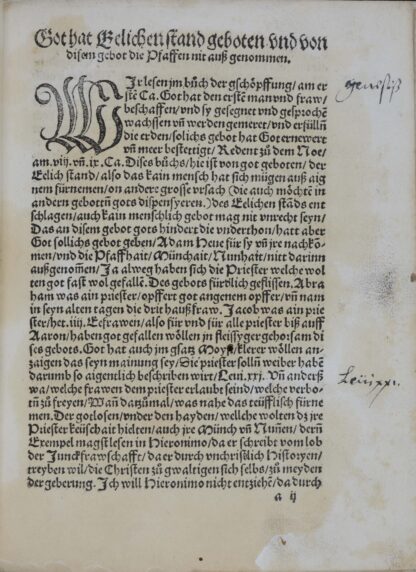 Got hat Eelichen stand geboten vnd von
disem gebot die Pfaffen nit auß genommen.
WIr lesen jm bůch der gschöpffung/ am er
stē Ca. Got hat den erstē man vnd fraw/
beschaffen/ vnd sy gesegnet vnd gesprochē
wachssen vn̄ werden gemeret/ vnd erfülln̄
die erden/ solichs gebot hat Got ernewert
vn̄ meer bestettigt/ Redent zů dem Noe/
am.viij. vn̄.ix. Ca. Dises bůchs/ hie ist von got geboten/ der
Eelich stand/ also das kain mensch hat sich mügen auß aig
nem fürnemen/ on andere grosse vrsach (die auch möchtē in
andern gebottn̄ gots dispensyeren.) des Eelichen stāds ent
schlagen/ auch kain menschlich gebot mag nit vnrecht seyn/
Das an disem gebot gots hindert die vnderthon/ hatt aber
Got sollichs gebot geben/ Adam Heue für sy vn̄ jre nachkō-
men/ vnd die Pfaffhait/ Münchait/ Nunhait/ nit darinn
außgenom̄en/ Ja alweg haben sich die Priester welche wol
ten got fast wol gefallē. Des gebots fürdlich geflissen. Abra
ham was ain priester/ opffert got angenem opffer/ vn̄ nam
in seyn alten tagen die drit hauß fraw. Jacob was ain prie
ster/ het.iiij. Eefrawen/ also für vnd für alle priester biß auff
Aaron/ haben got gefallen wöllen jn fleissyger gehorsam di
ses gebots. Got hat auch jm gsatz Moysi klerer wöllen an-
zaigen das seyn mainung sey/ Die priester solln̄ weiber habē
darumb so aigenlich beschriben wirt/ Leui.xxi. Vn̄ anderß
wa/ welche frawen den priester erlaubt seind/ welche verbo-
tn̄ zů freyen/ Wan̄ datzůmal/ was nahe das teüfflisch fürne
men. Der gotlosen/ vnder den hayden/ welche wolten dz jre
Priester keüschait hielten/ auch jre Münch vn̄ Nun̄en/ dern̄
Exempel magst lesen in Hieronimo/ da er schreibt vom lob
der Junckfrawschafft/ da er durch vnchristlich Historyen/
treyben wil/ die Christen zů gwaltigen sich selbs/ zů meyden
der geberung. Ich will Hieronimo nicht entziehē/ da durch
a ij
genesis
Leui xxi.